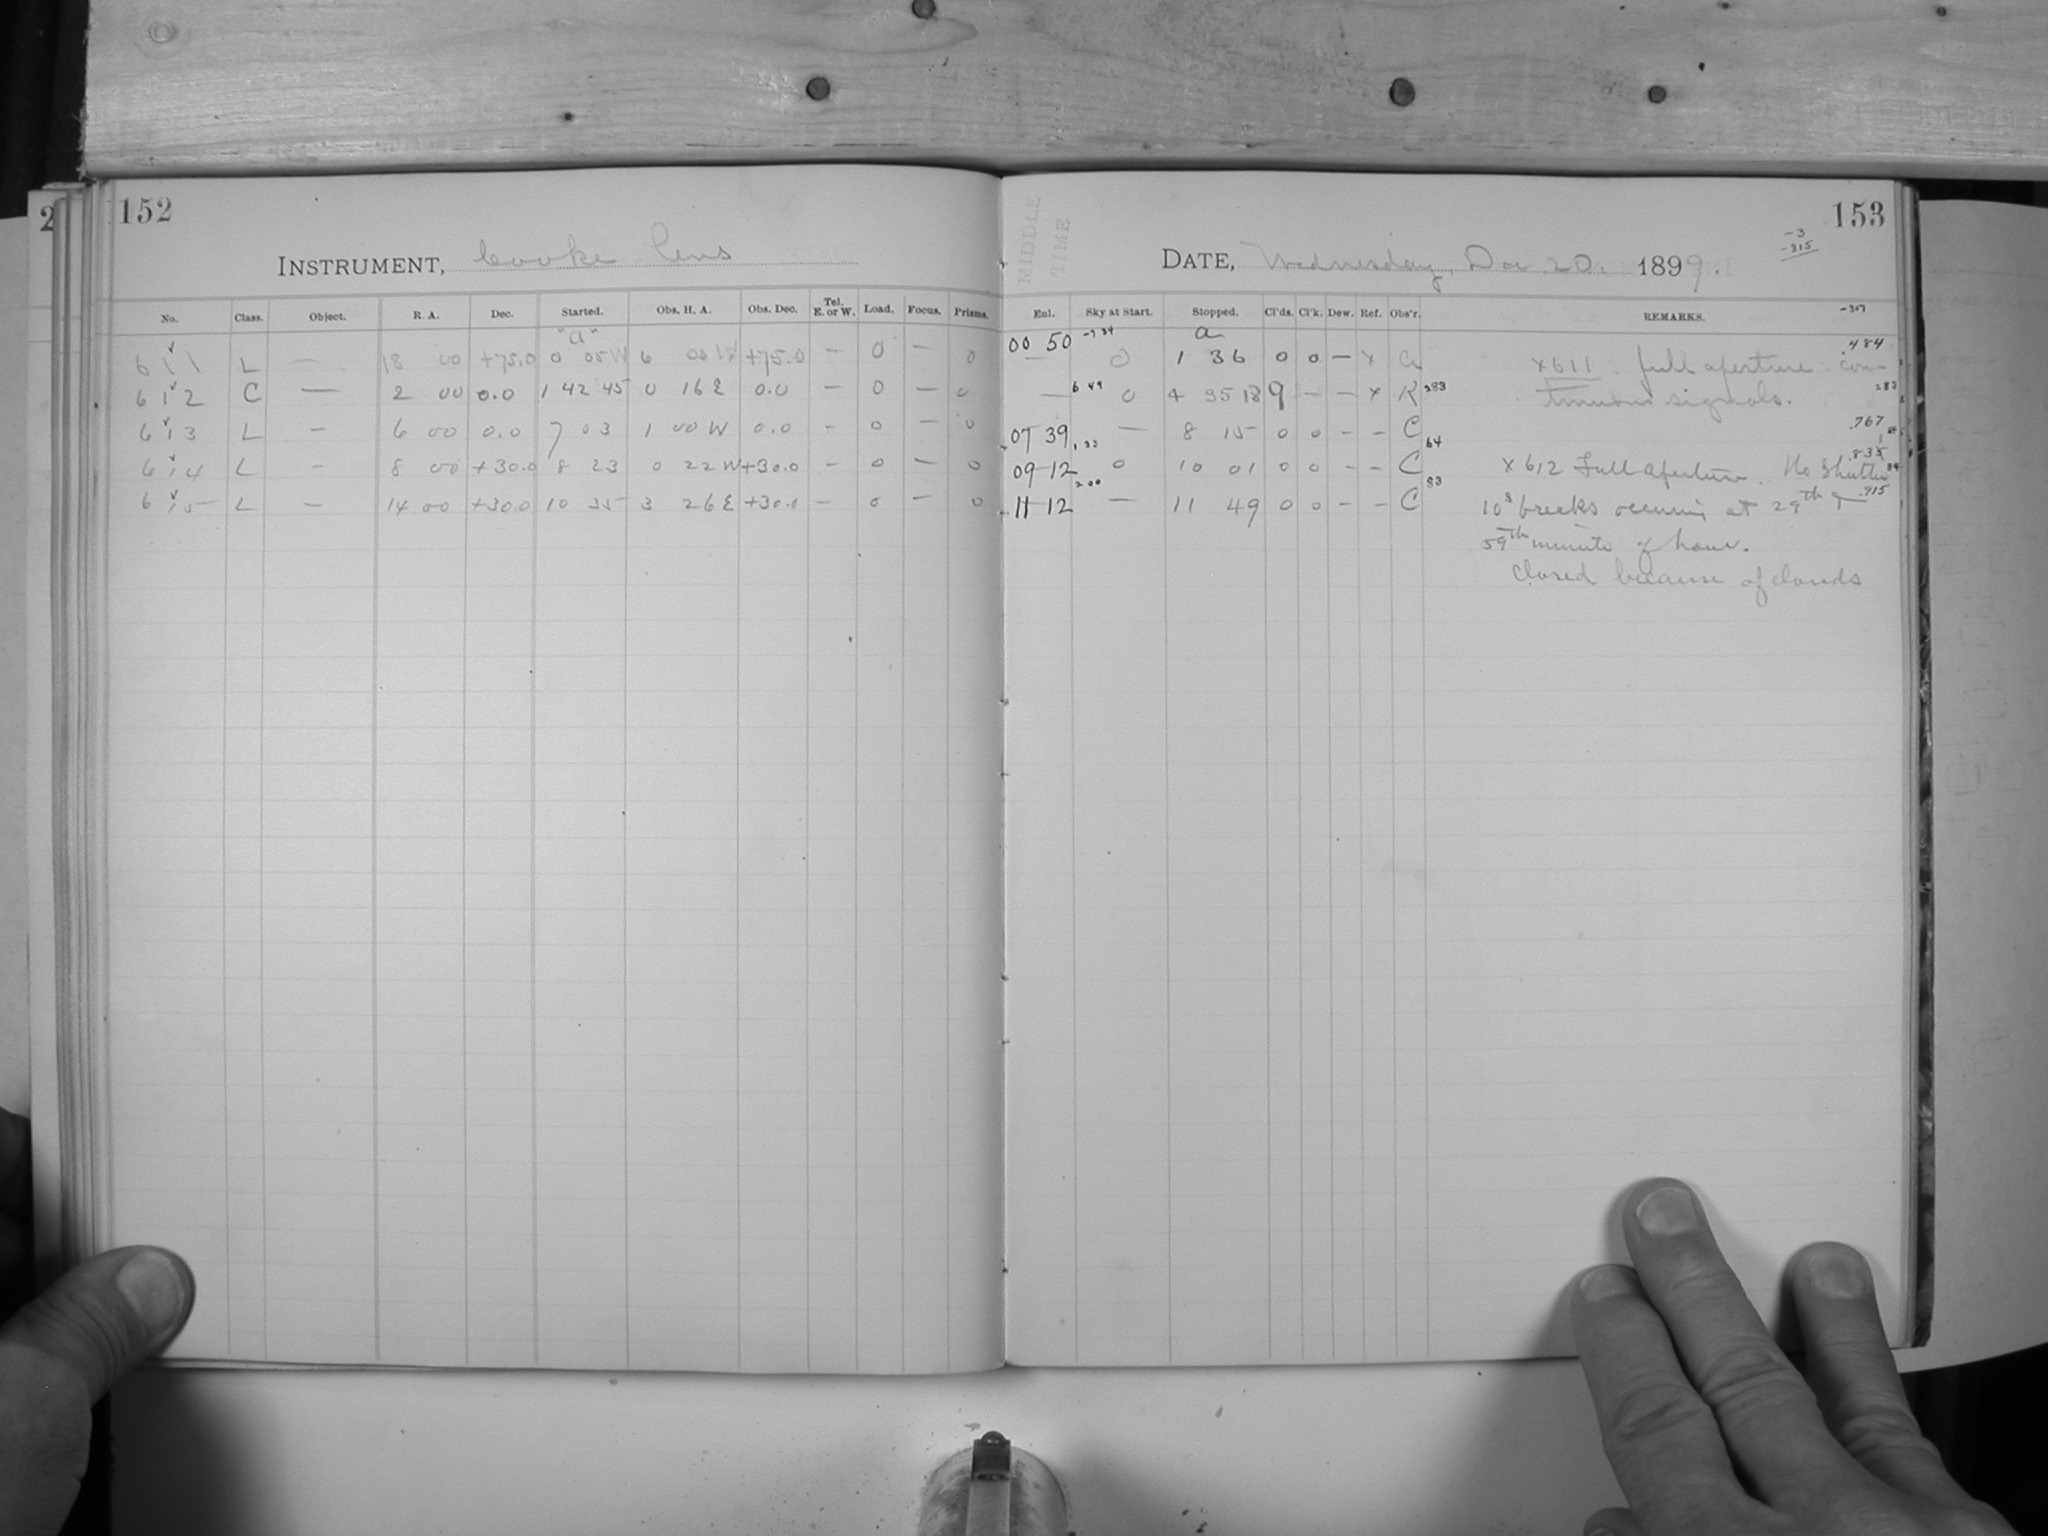 2
152
INSTRUMENT, Cooke Lens
No. Class. Object. R. A. Dec. Started. Obs. H. A. Obs. Dec. Tel. E. or W. Load. Focus. Prisms.
"a"
611 L — 18 00 +75.0 0 05 6 00 W +75.0 — 0 — 0
612 C — 2 00 0.0 1 42 45 0 16 E 0.0 — 0 — 0
613 L — 6 00 0.0 7 03 1 00 W 0.0 — 0 — 0
614 L — 8 00 +30.0 8 23 0 22 W +30.0 — 0 — 0
615 L — 14 00 +30.0 10 35 3 26 E +30.0 — 0 — 0
153
MIDDLE TIME
-3
-315
DATE, Wednesday, Dec 20, 1899.
Enl. Sky at Start. Stopped. Cl'ds. Cl'k. Dew. Ref. Obs'r. REMARKS. -307
a
00 50 0 1 36 0 0 — x x611. full aperture. con- .484
— 6 49 0 4 35 18 9 — — x R 283 tinuous signals. 283
07 39 — 8 15 0 0 — — C .767
64
09 12 0 10 01 0 0 — — C x 612 Full aperture. No Shutter .835
83
11 12 — 11 49 0 0 — — C 10s breaks occuring at 29th & .915
59th minute of hour.
Closed because of clouds